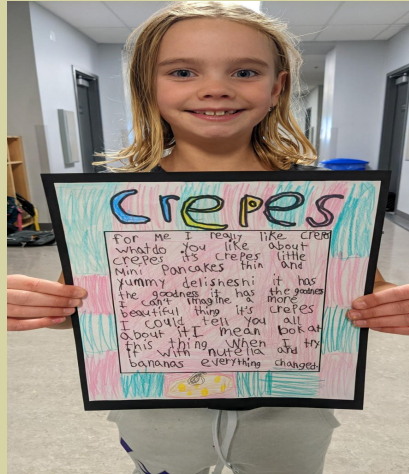 Crepes
for me I really like crepe
whatdo you like about
crepes it's crepes little
mini pancakes thin and
yummy delisheshi it has
the goodness it has the goodness
I can't imagine a more
beautiful thing it's crepes
I could tell you all
about it I mean look at
this thing when I try
it with nutella and
bananas everything changed